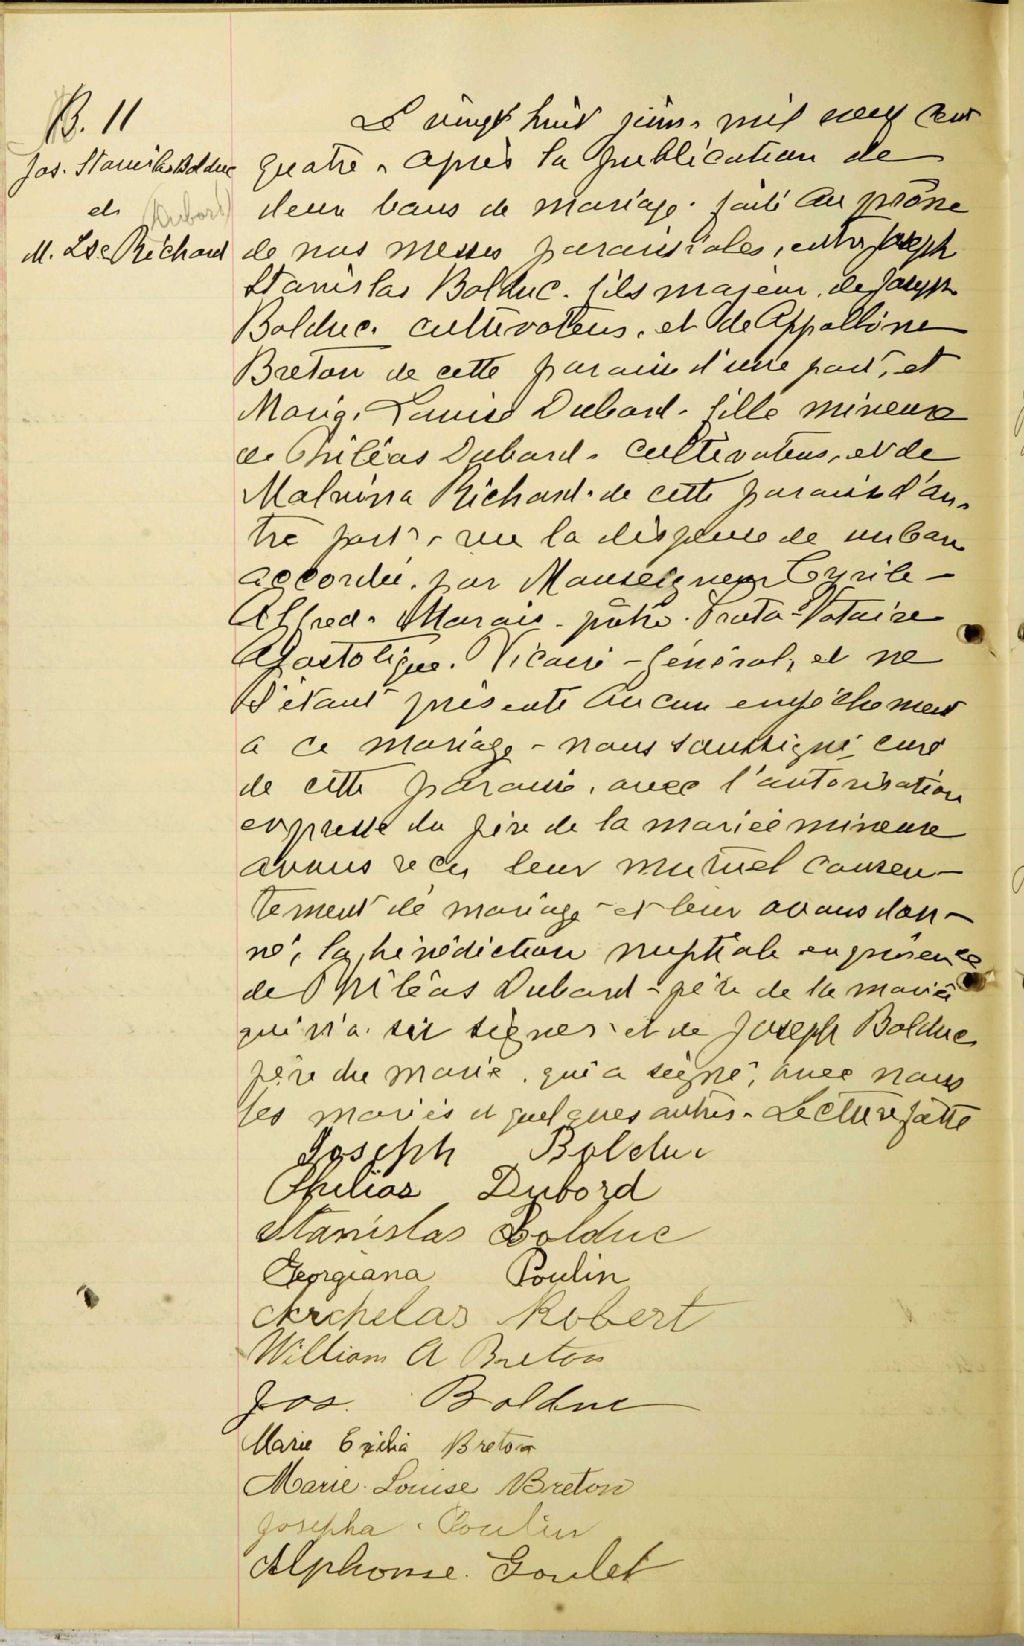 B. 11
Jos. Stanislas Bolduc
et (Dubord)
M. Lse Richard
Le vingt huit juin mil neuf cent
quatre, après la publication de
deux bans de mariage faite au prône
de nos messes paroissiales, entre Joseph
Stanislas Bolduc, fils majeur, de Joseph
Bolduc, cultivateur, et de Appolline
Breton de cette paroisse d'une part, et
Marie Louise Dubord, fille mineure
de Philéas Dubord, cultivateur, et de
Malvina Richard, de cette paroisse d'au-
tre part, vu la dispense de un ban
accordée par Monseigneur Cyrile-
Alfred Marois, prêtre Proto-Notaire
Apostolique, Vicaire-Général, et ne
s'étant présenté aucun empêchement
a ce mariage - nous soussigné, curé
de cette paroisse, avec l'autorisation
expresse du père de la mariée mineure
avons reçu leur mutuel consen-
tement de mariage et leur avons don-
né, la bénédiction nuptiale en présence
de Philéas Dubord - père de la mariée
qui n'a su signer, et de Joseph Bolduc
père du marié, qui a signé, avec nous
les mariés et quelques autres. Lecture faite
Joseph Bolduc
Philias Dubord
Stanislas Bolduc
Georgiana Poulin
Archelas Robert
William A Breton
Jos. Bolduc
Marie Exilia Breton
Marie Louise Breton
Josepha Poulin
Alphonse Goulet